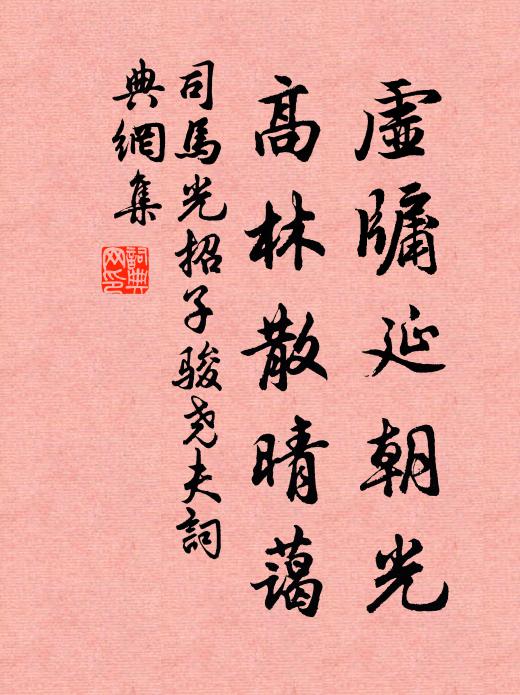 虛牖延朝光
高林散晴藹
司馬光招子駿尧夫詞
典網集
詞典
网印